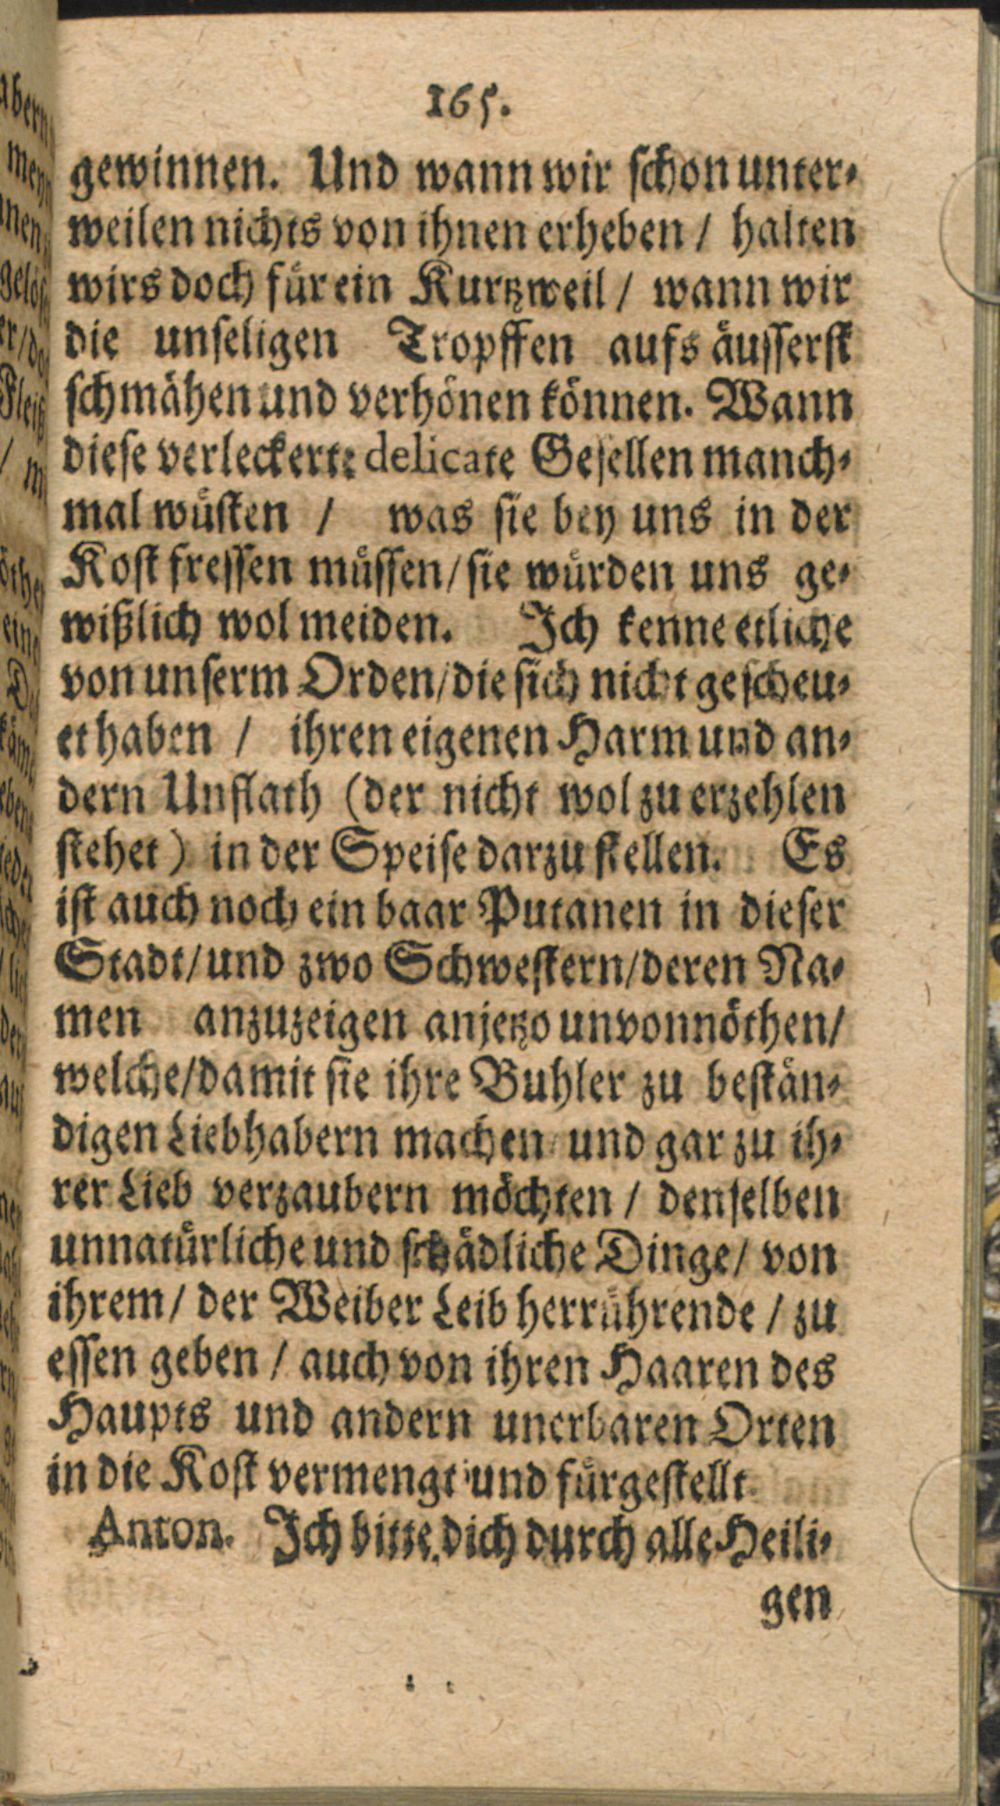 165.
gewinnen. Und wann wir schon unter-
weilen nichts von ihnen erheben / halten
wirs doch für ein Kurtzweil / wann wir
die unseligen Tropffen aufs äusserst
schmähen und verhönen können. Wann
diese verleckerte delicate Gesellen manch-
mal wüsten / was sie bey uns in der
Kost fressen müssen / sie würden uns ge-
wißlich wol meiden. Ich kenne etliche
von unserm Orden / die sich nicht gescheu-
et haben / ihren eigenen Harm und an-
dern Unflath (der nicht wol zu erzehlen
stehet) in der Speise darzustellen. Es
ist auch noch ein baar Putanen in dieser
Stadt / und zwo Schwestern / deren Na-
men anzuzeigen anjetzo unvonnöthen /
welche / damit sie ihre Buhler zu bestän-
digen Liebhabern machen und gar zu ih-
rer Lieb verzaubern möchten / denselben
unnatürliche und schädliche Dinge / von
ihrem / der Weiber Leib herrührende / zu
essen geben / auch von ihren Haaren des
Haupts und andern unerbaren Orten
in die Kost vermengt und fürgestellt.
Anton. Ich bitte dich durch alle Heili-
gen